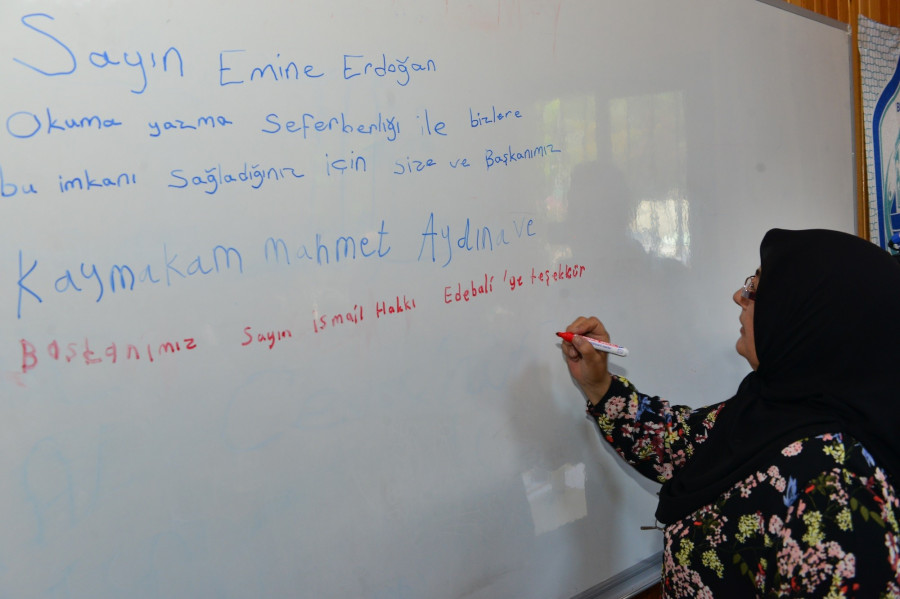 Sayın Emine Erdoğan
Okuma yazma Seferberlığı ile bizlere
bu imkanı Sağladığınız için size ve Başkanımız
Kaymakam mahmet Aydına ve
Başkanımız Sayın ismail Hakkı Edebali'ye teşekkür